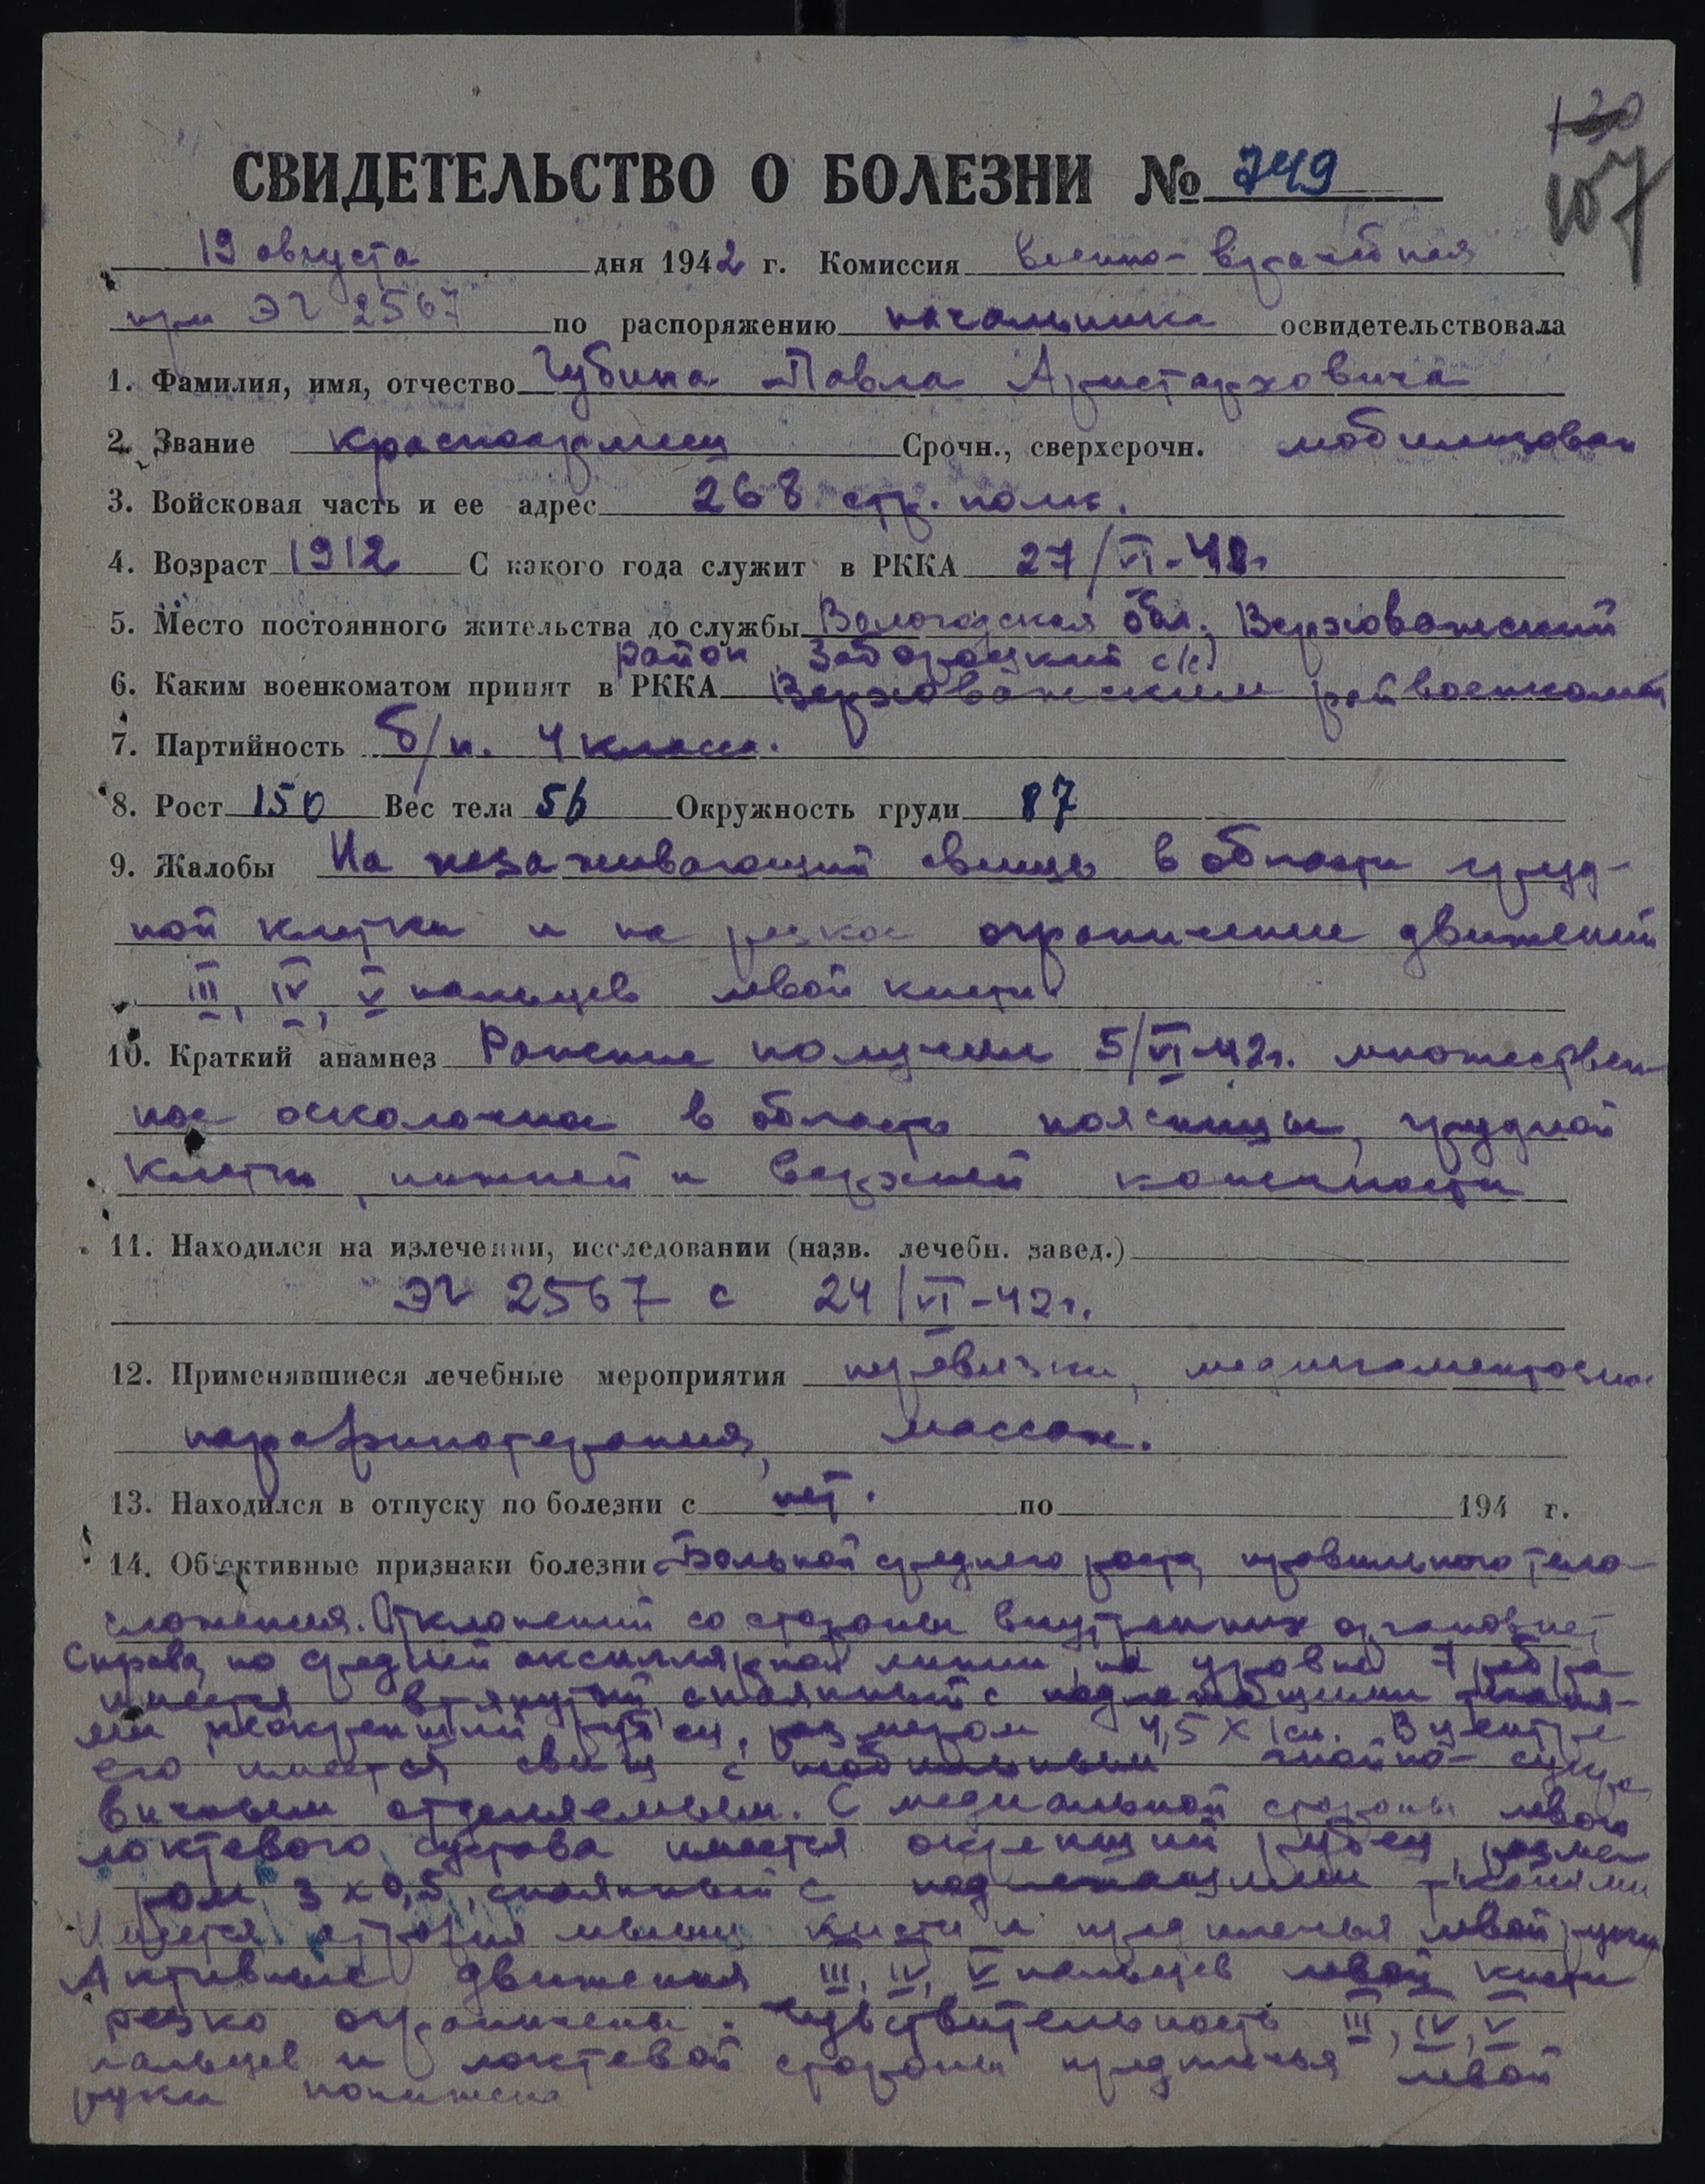 130
107
СВИДЕТЕЛЬСТВО О БОЛЕЗНИ № 749
19 августа дня 1942 г. Комиссия военно-врачебная
при ЭГ 2567 по распоряжению начальника освидетельствовала
1. Фамилия, имя, отчество Чубина Павла Аристарховича
2. Звание красноармеец Срочн., сверхсрочн. мобилизован
3. Войсковая часть и ее адрес 268 стр. полк.
4. Возраст 1912 С какого года служит в РККА 27/VI-41г
5. Место постоянного жительства до службы Вологодская обл., Верховажский
район, Заборацкий с/с)
6. Каким военкоматом принят в РККА Верховажским райвоенкомат
7. Партийность б/п. 4 класса.
8. Рост 150 Вес тела 56 Окружность груди 87
9. Жалобы На незаживающий свищь в области груд-
ной клетки и на резкое ограничение движений
III, IV, V пальцев левой кисти
10. Краткий анамнез Ранение получил 5/VI-42г. множествен-
ное осколочное в область поясницы, грудной
клетки, нижней и верхней конечности
11. Находился на излечении, исследовании (назв. лечебн. завед.)
ЭГ 2567 с 24/VI-42г.
12. Применявшиеся лечебные мероприятия перевязки, медикаментозное
парафинотерапия, массаж.
13. Находился в отпуску по болезни с нет. по 194 г.
14. Объективные признаки болезни Больной среднего роста, правильного тело-
сложения. Отклонений со стороны внутренних органов нет
Справа, по средней аксиллярной линии, на уровне 7 ребра
имеется втянутый, спаянный с подлежащими тканя-
ми, неокрепший рубец, размером 4,5 х 1 см. В центре
его имеется свищ с необильным гнойно-сукро-
вичным отделяемым. С медиальной стороны левого
локтевого сустава имеется окрепший рубец, разме
ром 3 х 0,5, спаянный с подлежащими тканями
Имеется атрофия мышц кисти и предплечья левой руки
Активные движения III, IV, V пальцев левой кисти
резко ограничены. Чувствительность III, IV, V
пальцев и локтевой стороны предплечья левой
руки понижена